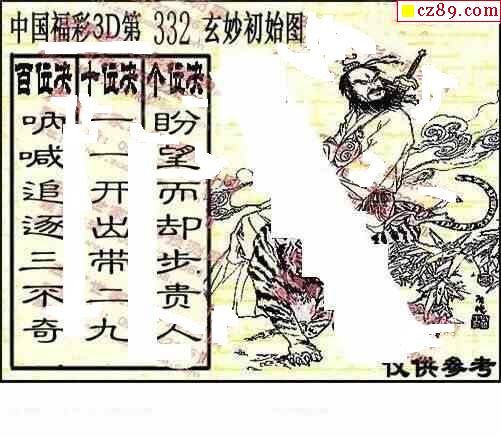 cz89.com
中国福彩3D第 332 玄妙初始图
百位决 十位决 个位决
呐喊追逐三不奇
一一开出带二九
盼望而却步贵人
仅供参考